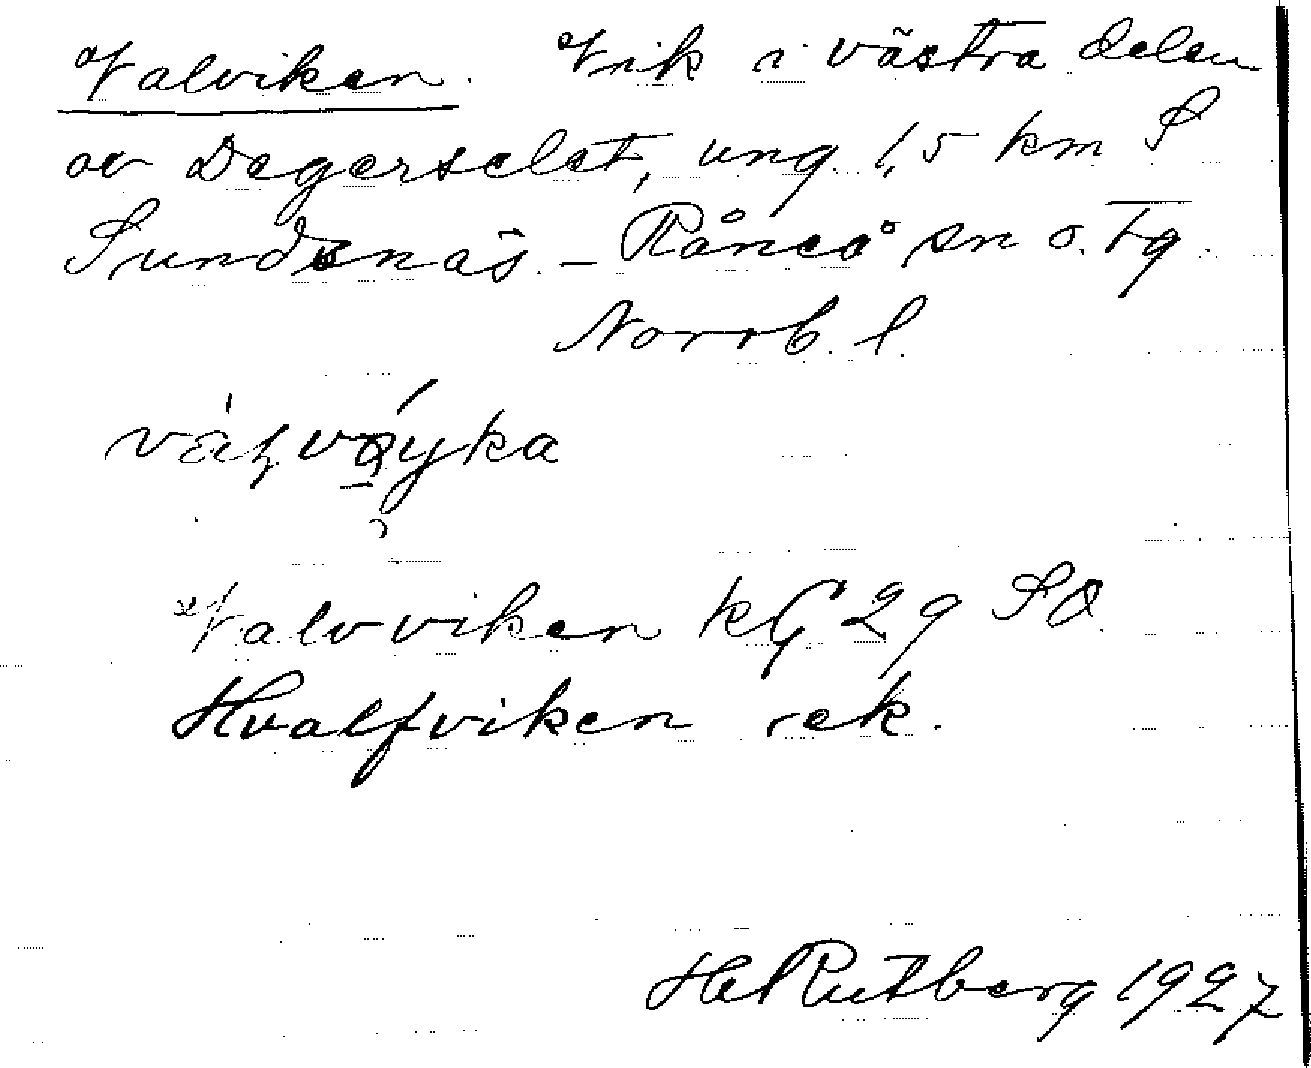 Valviken. Vik i västra delen
av Degerselet, ung. 1,5 km S
Sundsnäs. – Råneå sn o. tg.
Norrb. l.
Valvviken kG 29 SO
Hvalfviken rek.
H Rutberg 1927